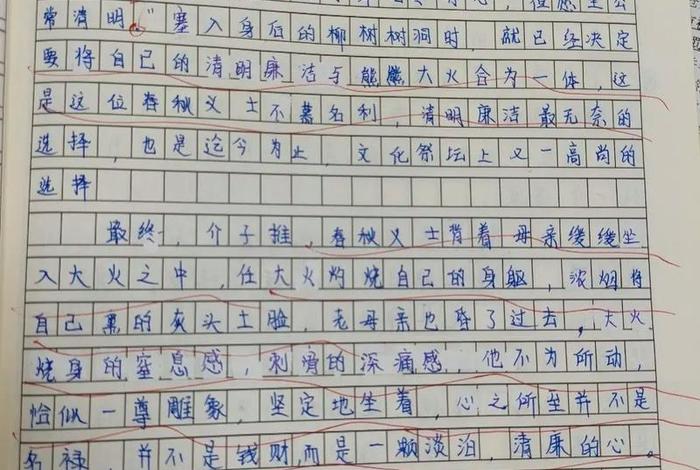 常清明。"塞入身后的柳树树洞时，就已经决定
要将自己的清明廉洁与熊熊大火合为一体，这
是这位春秋义士不慕名利，清明廉洁最无奈的
选择，也是迄今为止，文化祭坛上又一高尚的
选择
最终，介子推，春秋义士背着母亲缓缓坐
入大火之中，任大火灼烧自己的身躯，浓烟将
自己熏的灰头土脸，老母亲也昏了过去，大火
烧身的窒息感，刺骨的深痛感，他不为所动，
恰似一尊雕象，坚定地坐着，心之所至并不是
名禄，并不是钱财，而是一颗淡泊，清廉的心。